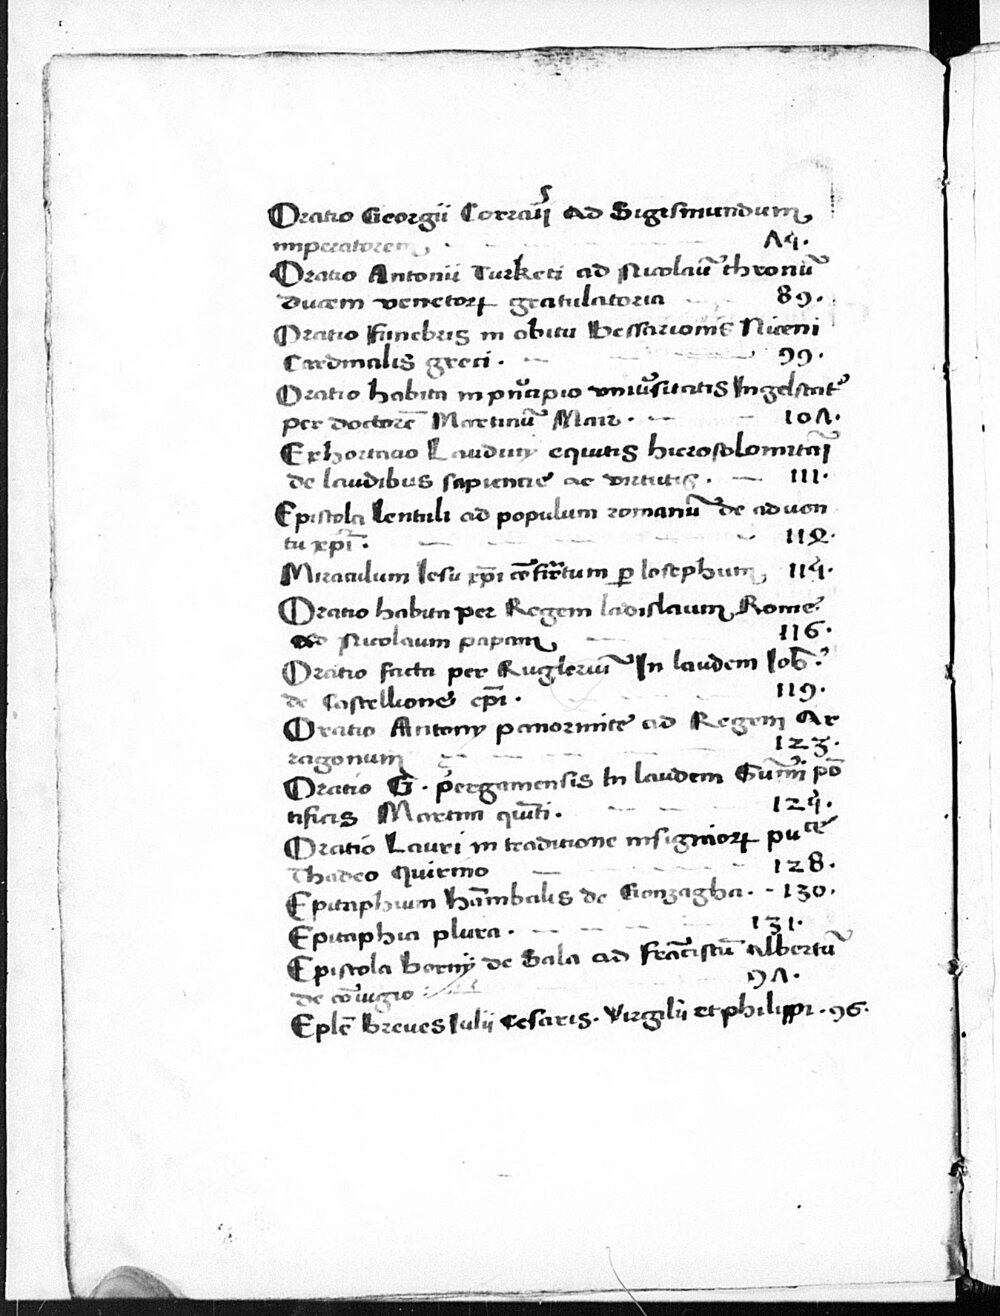 Oratio Georgii Corrarii ad Sigismundum
imperatorem 75.
Oratio Antonii Turketi ad Nicolaū thronū
ducem venetoꝝ gratulatoria 89.
Oratio funebris in obitu Bessarionis Niceni
Cardinalis greci. 99.
Oratio habita in pͥncipio vniũsitatis Ingelstat̉
per doctorē Martinū Mair. 107.
Exhortatio Laudivij equitis hierosolomitāi
de laudibus sapiencie ac virtutis. 111.
Epistola Lentuli ad populum romanū de aduen
tu xp̄i. 112.
Miraculum Iesu xp̄i cōfir̄tum ꝑ Iosephum 114.
Oratio habita per Regem ladislaum Rome
ad Nicolaum papam 116.
Oratio facta per Rugleriū In laudem Ioh̄.
de Castellione ep̄i. 119.
Oratio Antonij panormite ad Regem Ar
ragonum 123.
Oratio G. pergamensis In laudem Sūmi pō
tificis Martini quīti. 124.
Oratio Lauri in traditione insignioꝝ
Thadeo Quirino 128.
Epitaphium Hānibalis de Gonzagha. - 130.
Epitaphia plura. 131.
Epistola Bornij de Sala ad frācistū Albertū
de cōiugio : 97.
Eplē breues Iulii Cesaris. Virgilii et philippi. 96.